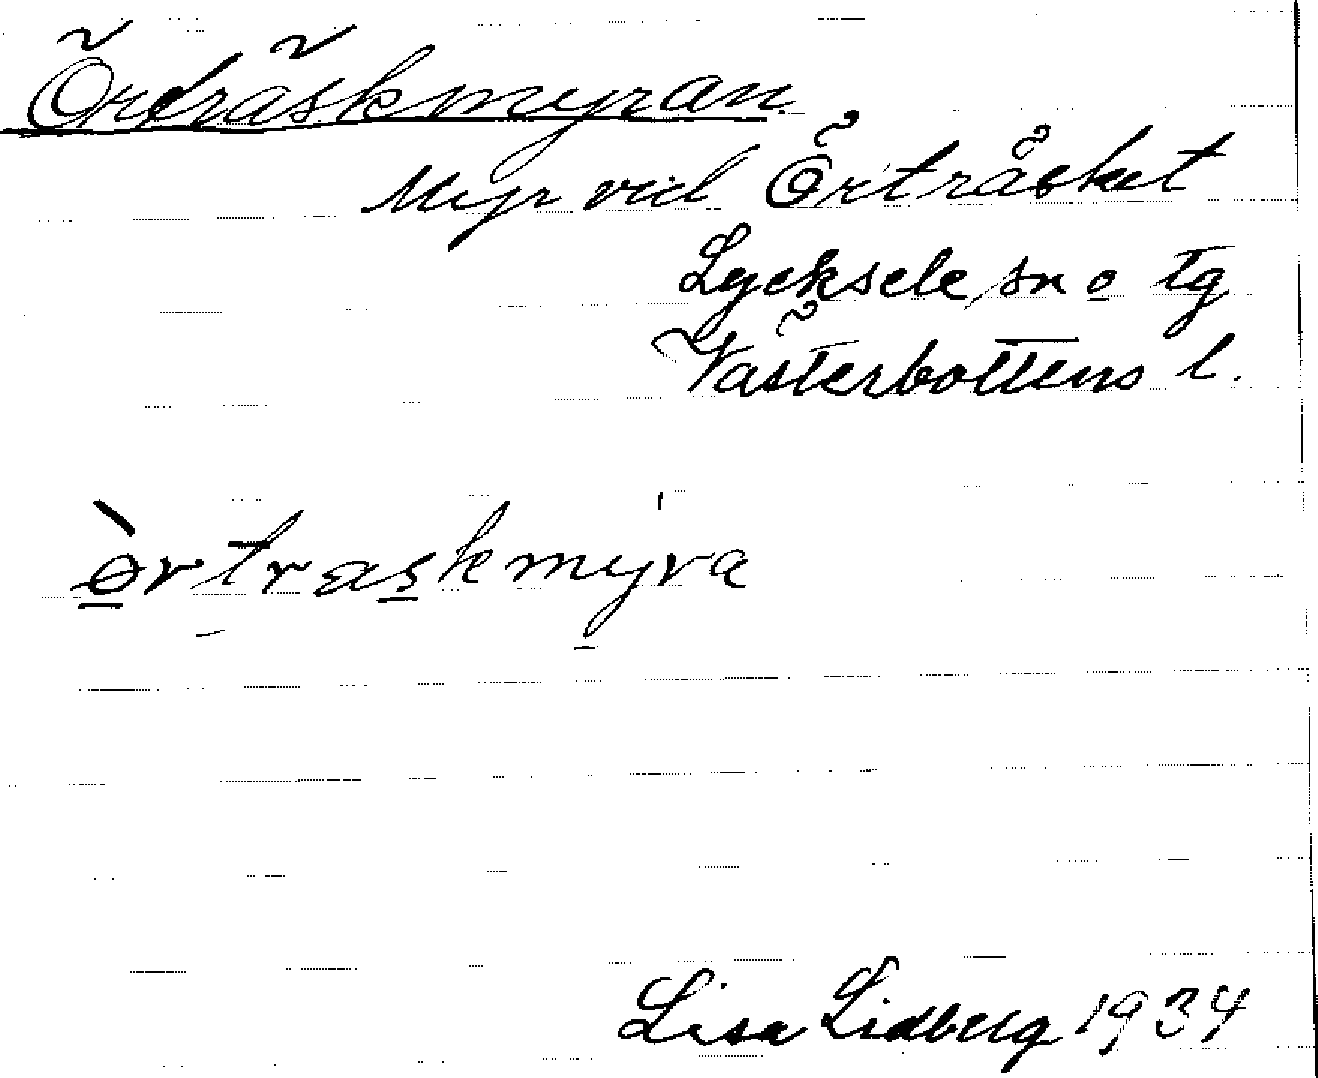 Örträskmyran.
Myr vid Örträsket
Lycksele sn o tg
Västerbottens l.
ø̀rtraskmyra
Lisa Lidberg 1934